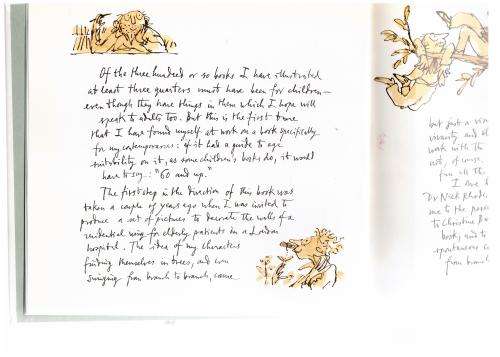 Of the three hundred or so books I have illustrated
at least three quarters must have been for children –
even though they have things in them which I hope will
speak to adults too. But this is the first time
that I have found myself at work on a book specifically
for my contemporaries: if it had a guide to age
suitability on it, as some children's books do, it would
have to say: "60 and up."
The first step in the direction of this book was
taken a couple of years ago when I was invited to
produce a set of pictures to decorate the walls of a
residential wing for elderly patients in a London
hospital. The idea of my characters
finding themselves in trees, and even
swinging from branch to branch, came
but just a
vivacity and
work with the
not, of course,
for all the
I am
Dr Nick Rhodes
me to the
to Christine
books, and to
spontaneous
from branch